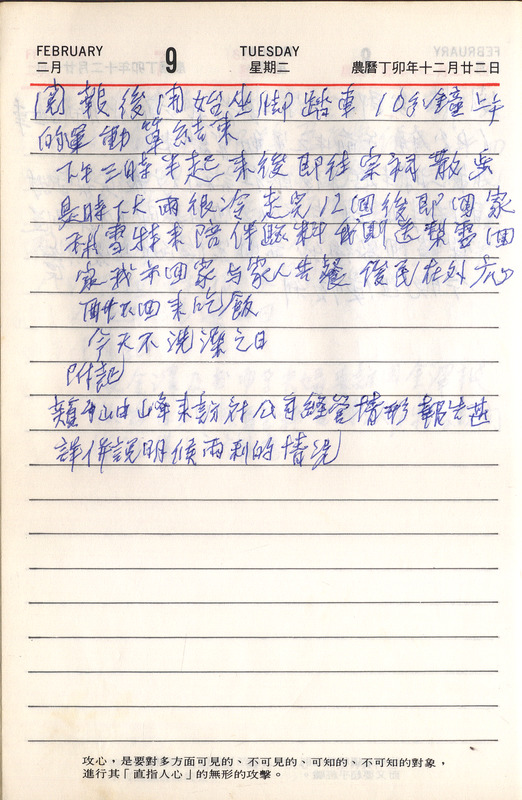 FEBRUARY 9 TUESDAY
二月 星期二 農曆丁卯年十二月廿二日
報後開始坐脚踏車10分鐘上午
的運動算結束
下午三時半起來後即往 散步
是時下大雨很冷走完12圈後即回家
秋雪特來陪伴 我即送 雪回
家我亦回家与家人共餐俊民在外
酬不回來吃飯
今天不洗澡之日
附記
山 來訪社公司經營情形報告甚
詳併說明 兩利的情況
攻心，是要對多方面可見的、不可見的、可知的、不可知的對象，
進行其「直指人心」的無形的攻擊。